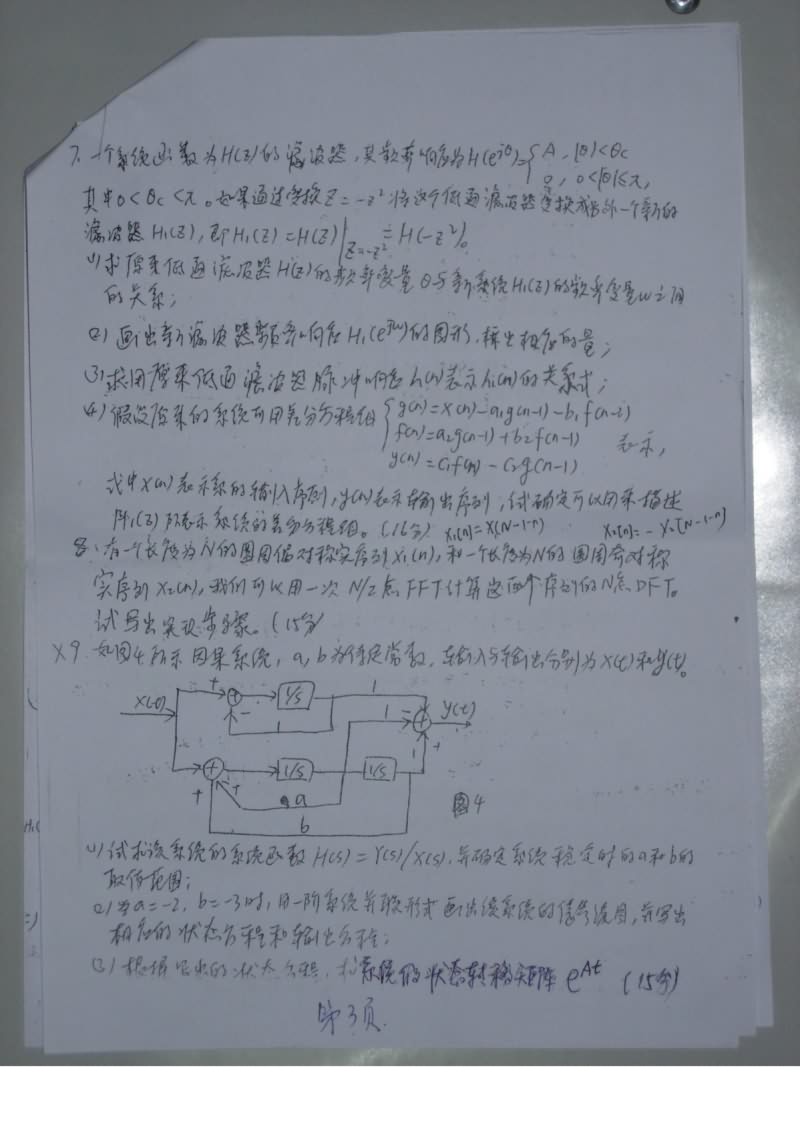 7. 一个系统函数为H(z)的滤波器,其频率响应为H(e^{jθ})={A, |θ|<θc
0, θc<|θ|≤π,
其中0<θc<π。如果通过变换Z=-z²将这个低通滤波器变换成另外一个新的
滤波器H₁(z),即H₁(z)=H(Z)|_{Z=-z²}=H(-z²)。
(1)求原来低通滤波器H(Z)的频率变量θ与新系统H₁(z)的频率变量ω之间
的关系;
(2)画出新滤波器频率响应H₁(e^{jω})的图形,标出相应的量;
(3)求用原来低通滤波器脉冲响应h(n)表示h₁(n)的关系式;
(4)假设原来的系统可用差分方程组{g(n)=x(n)-a₁g(n-1)-b₁f(n-2)
f(n)=a₂g(n-1)+b₂f(n-1)
y(n)=c₁f(n)-c₂g(n-1)
表示,
式中x(n)表示系的输入序列,y(n)表示输出序列,试确定可以用来描述
H₁(z)所表示系统的差分方程组。(16分) x₁[n]=x₁[N-1-n) x₂[n]=-x₂[N-1-n)
8、有一个长度为N的圆周偶对称实序列x₁(n),和一个长度为N的圆周奇对称
实序列x₂(n),我们可以用一次N/2点FFT计算这两个序列的N点DFT。
试写出实现步骤。(15分)
X 9. 如图4所示因果系统,a,b为待定常数,输入与输出分别为x(t)和y(t)。
x(t)
+
-
1/s
1
1
1
-
y(t)
+
+
1/s
1/s
1
+
a
b
图4
(1)试求该系统的系统函数H(s)=Y(s)/X(s),并确定系统稳定时的a和b的
取值范围;
(2)当a=-2,b=-3时,用一阶系统并联形式画出该系统的信号流图,并写出
相应的状态方程和输出方程;
(3)根据写出的状态方程,求系统的状态转移矩阵e^{At} (15分)
第3页